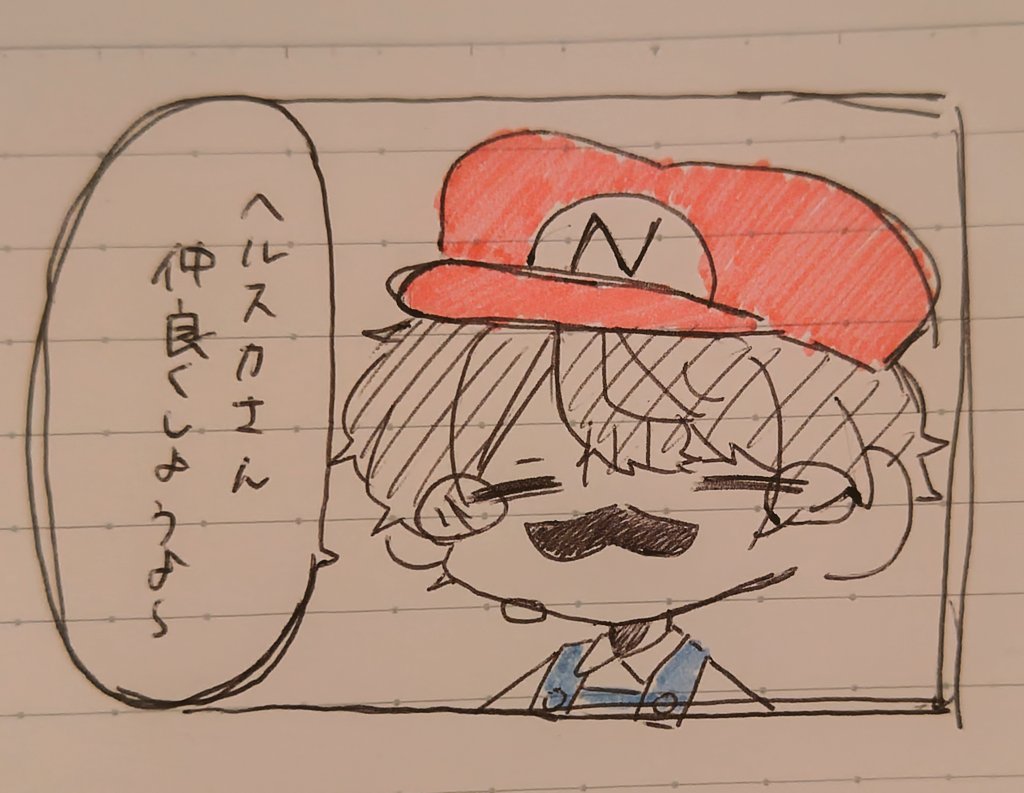 ヘルスカさん
仲良くしようよ~
N